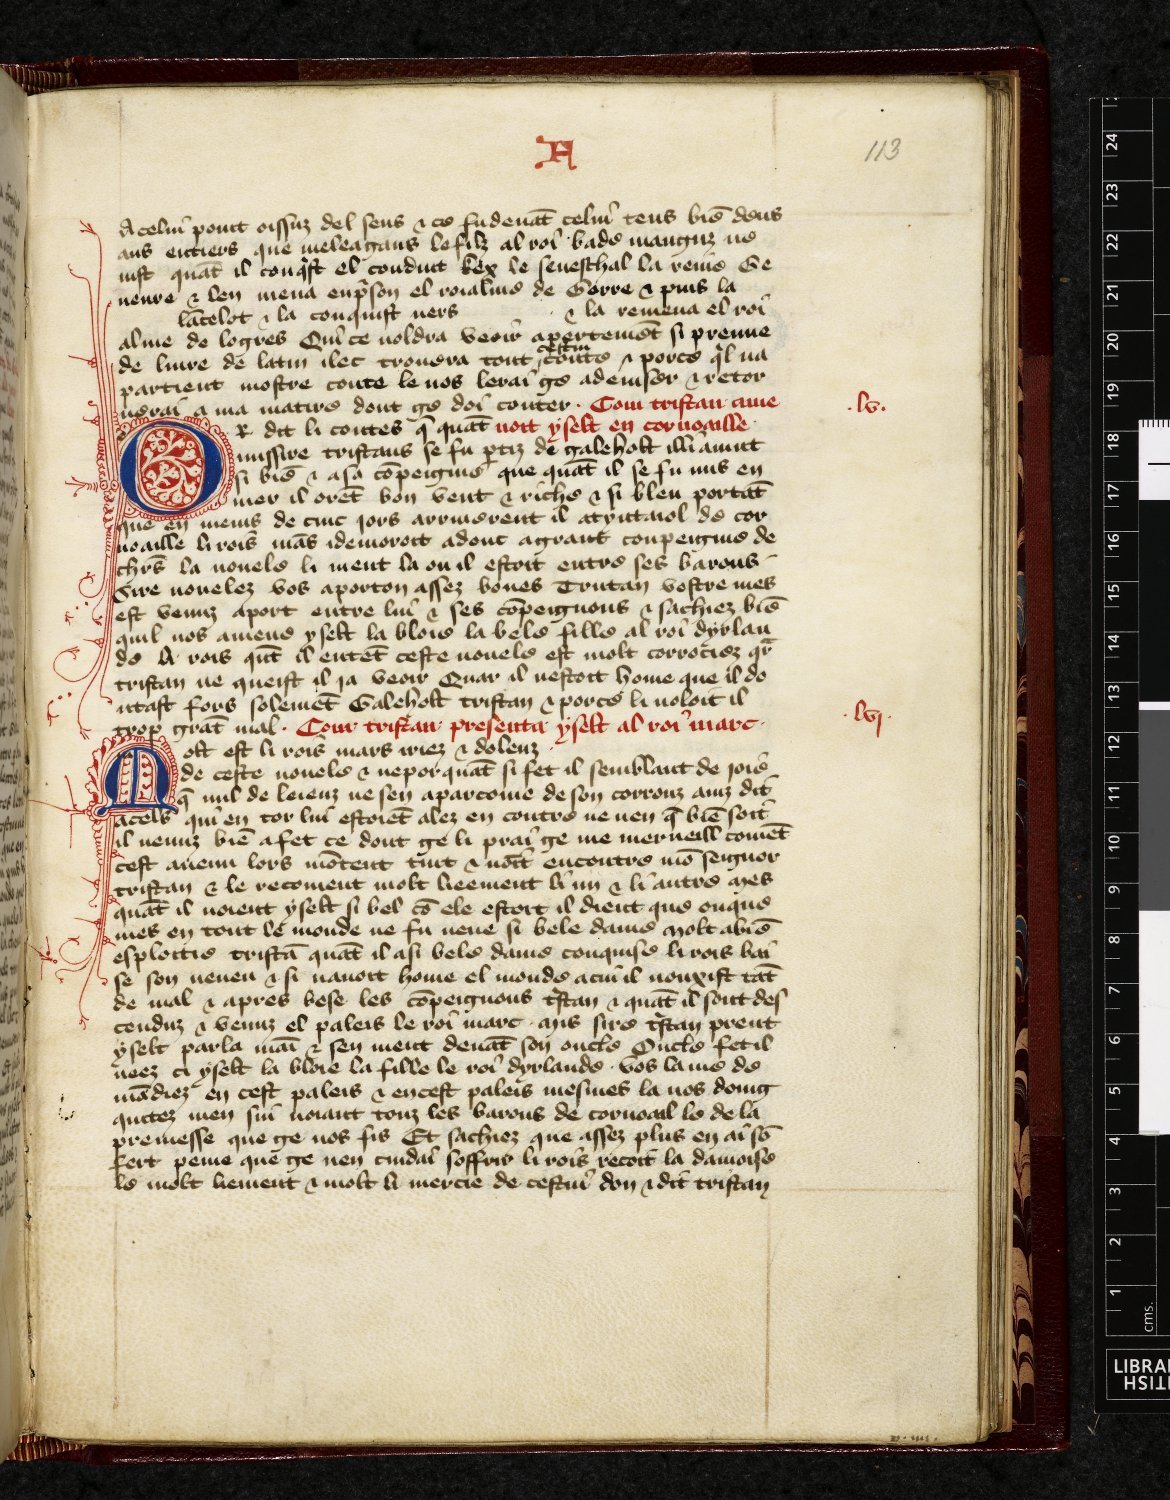 A
113
A celui point oissuz del sens ⁊ ce fu deuāt celui tens biē deus
ans entiers que meleagans le filz al roi bade mangus ne
nist quāt il conqist el conduit kex le seneschal la reine Ge
neure ⁊ len mena en pson el roialme de Gorre ⁊ puis la
lācelot ⁊ la conquist uers ⁊ la remena el roi
alme de logres Qui ce uoldra veoir apertemēt si prenne
de liure de latin ilec trouera tout certein conte ⁊ porce ql na
partient nostre conte le uos lerai ge a deuiser ⁊ retor
nerai a ma matire dont ge doi conter · Com tristan ame
.lv.
r dit li contes q̄ quāt noit yselt en cornoaille
O missire tristans se fu ptiz de galeholt
si biē ⁊ a sa cōpeignie que quāt il se fu mis en
mer il orēt bon vent ⁊ riche ⁊ si bien portāt
que en meins de cinc jors arriuerent il a tyntaiol de cor
noaille li rois mās i demoroit adont a grant conpeignie de
chrs la nouele li uient la ou il estoit entre ses barons
Sire nouelez vos aporton assez bones Tristan vostre nies
est venuz a port entre lui ⁊ ses cōpeignons ⁊ sachiez biē
quil uos amene yselt la bloie la bele fille al roi dyrlan
de li rois qūt il entēt ceste nouele est molt corrociez qr
tristan ne queist il ja veoir Quar il nestoit home que il do
utast fors solemēt Galeholt tristan ⁊ porce li uoloit il
trop grāt mal · Com tristan presenta yselt al roi marc ·
.lvj.
M olt est li rois mars iriez ⁊ dolenz
de ceste nouele ⁊ neporquāt si fet il semblant de joie
q̄ nul de leienz ne sen aparcoiue de son corrouz ainz dit
a cels qui en tor lui estoiēt alez en contre ne uen q̄ biē soit
il uenuz biē a fet ce dont ge li prai ge me merueill comēt
cest auenu lors mōtent tuit ⁊ uōt encontre mō seignor
tristan ⁊ le recoiuent molt lieement li un ⁊ li autre mes
quāt il uoient yselt si bel cō ele estoit il dient que onque
mes en tout le monde ne fu ueue si bele dame Molt a biē
esploitie tristā quāt il a si bele dame conquise li rois bai
se son neueu ⁊ si nauoit home el monde a cui il uouxist tāt
de mal ⁊ apres bese les cōpeignons tstan ⁊ quāt il sont des
cenduz ⁊ venuz el paleis le roi marc · mis sire tstan prent
yselt par la māi ⁊ sen uient deuāt son oncle Oncle fet il
ueez ci yselt la bloie la fille le roi dyrlande · vos la me de
mādiez en cest paleis ⁊ en cest paleis meimes la uos doing
quitez men sui uoiant touz les barons de cornoail le de la
premesse que ge uos fis Et sachiez que assez plus en ai sō
fert peine que ge nen cuidai soffrir li rois recoit la damoise
le molt liement ⁊ molt li mercie de cestui don ⁊ dit tristan